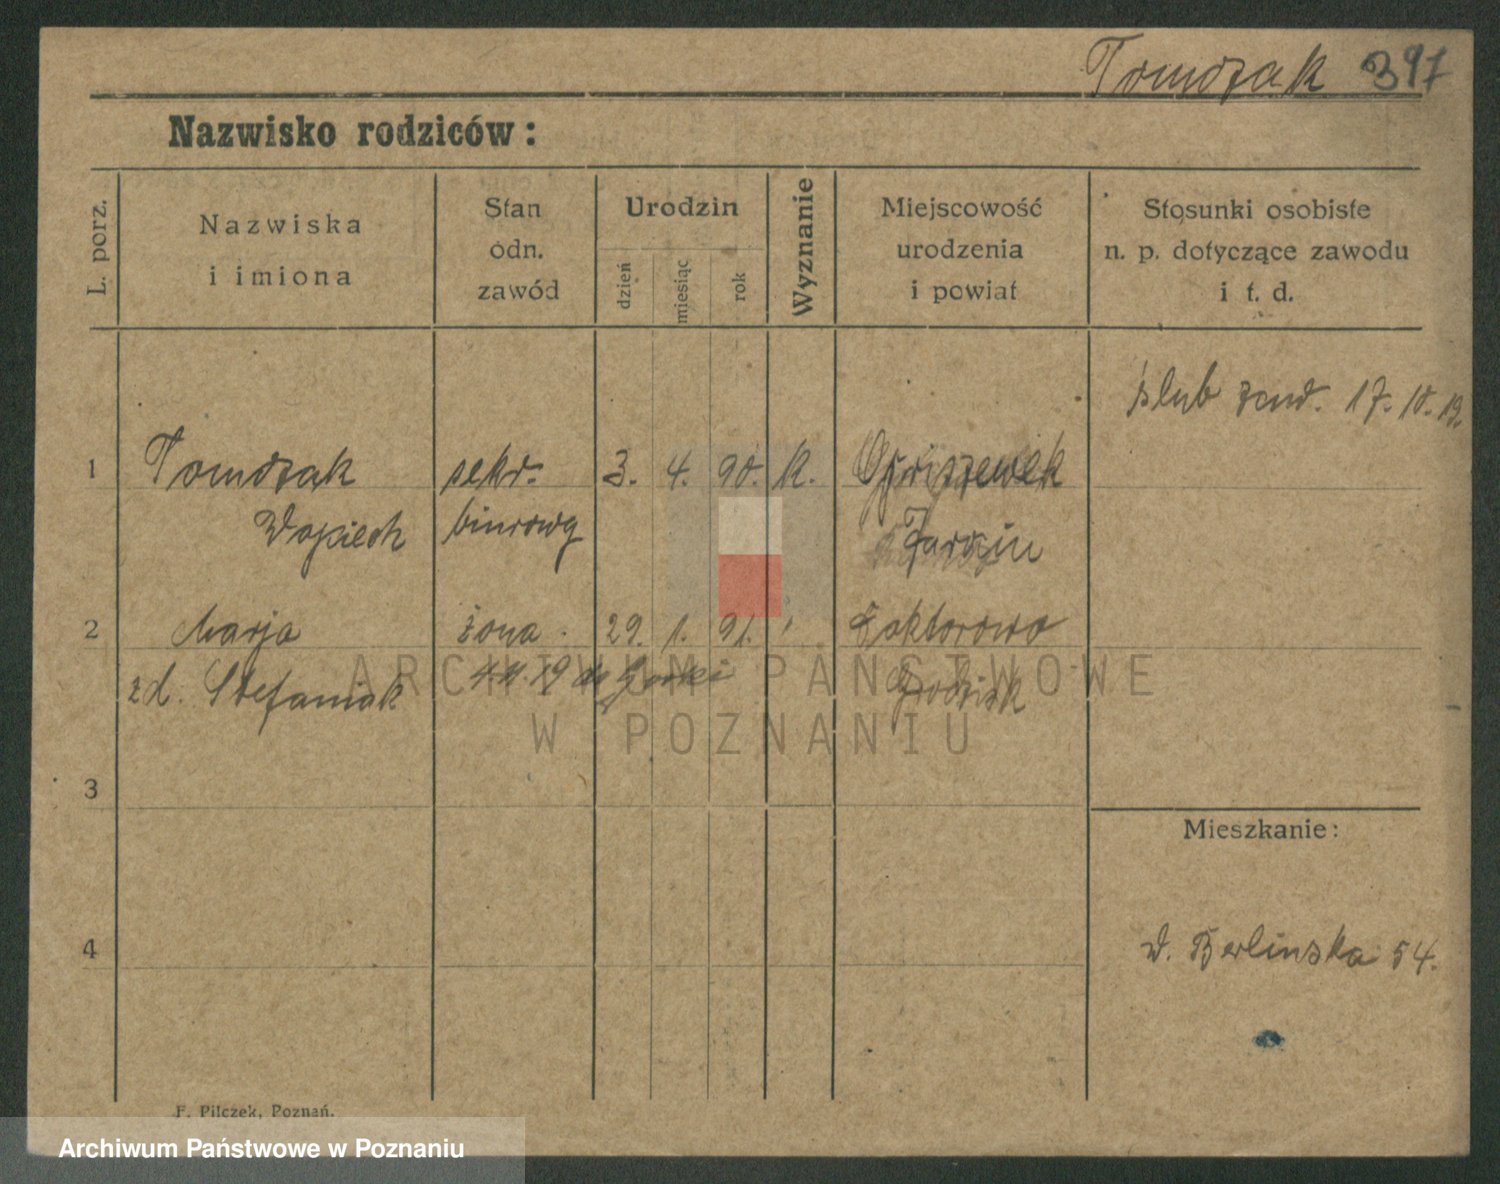 Tomczak 397
Nazwisko rodziców:
L. porz.
Nazwiska
i imiona
Stan
odn.
zawód
Urodzin
dzień
miesiąc
rok
Wyznanie
Miejscowość
urodzenia
i powiat
Stosunki osobiste
n. p. dotyczące zawodu
i t. d.
ślub 17. 10. 19.
1 Tomczak sekr. 3. 4. 90. k.
Wojciech biurowy Jarocin
2 Marja żona 29. 1. 91. Doktorowo
zd. Stefaniak Grodzisk
ARCHIWUM PAŃSTWOWE
W POZNANIU
3
Mieszkanie:
4
W. Berlinska 54.
F. Pilczek, Poznań.
Archiwum Państwowe w Poznaniu